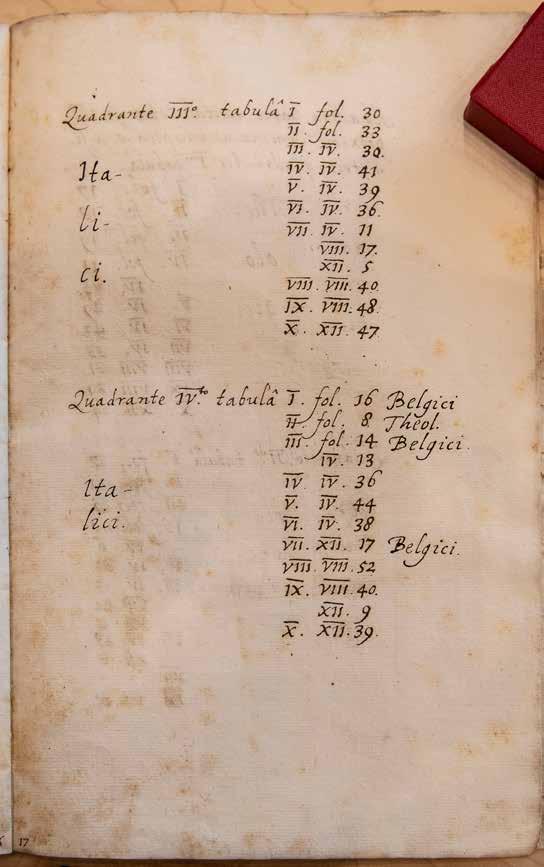 Quadrante III° tabulâ I fol. 30
II. fol. 33
III. IV. 30.
Ita- IV. IV. 41
V. IV. 39
li- VI. IV. 36.
VII. IV. 11
VIII. 17.
ci. XII. 5
VIII. VIII. 40.
IX. VIII. 48.
X. XII. 47.
Quadrante IV.to tabulâ I. fol. 16 Belgici
II. fol. 8 Theol.
III. fol. 14 Belgici.
IV. 13
Ita- IV IV. 36
lici. V. IV. 44
VI. IV. 38
VII. XII. 17 Belgici.
VIII VIII. 52
IX. VIII. 40.
XII. 9
X. XII. 39.
17